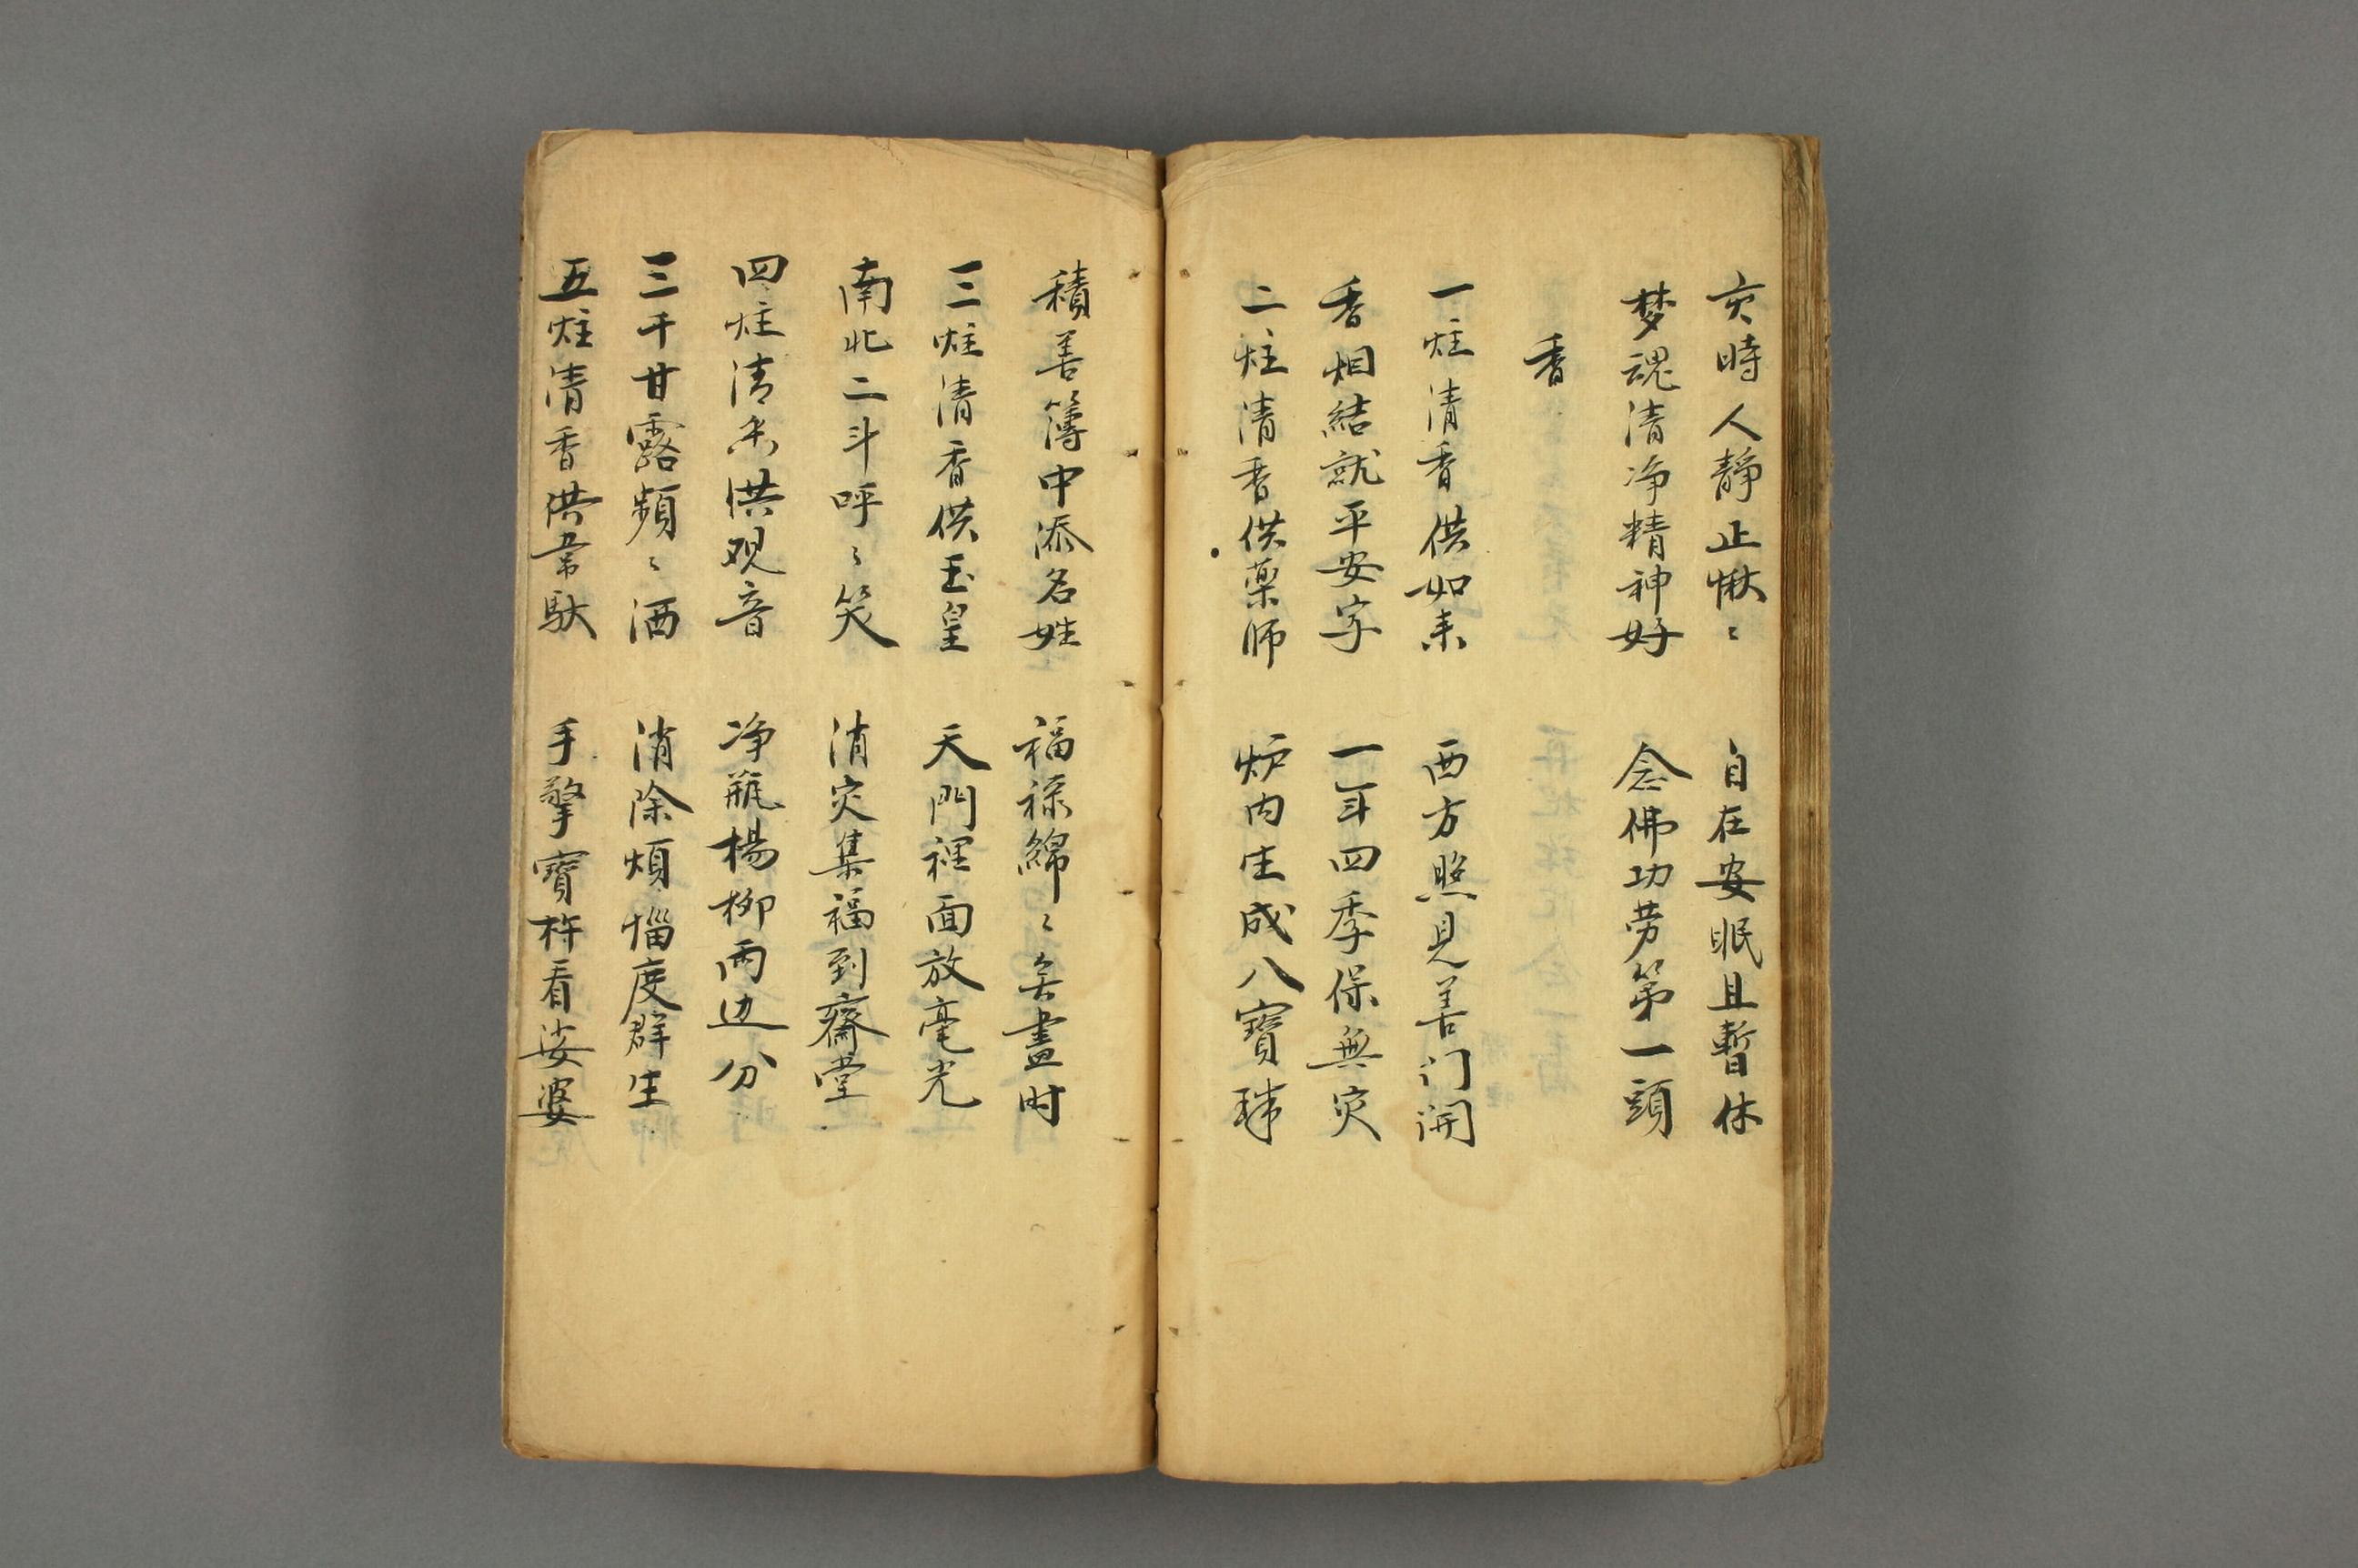 亥時人靜止愀〻 自在安眠且暫休
梦魂清净精神好 念佛功劳第一頭
香
一炷清香供如来 西方照見善门開
香烟結就平安字 一年四季保無灾
二炷清香供藥师 炉内生成八寳珠
積善簿中添名姓 福禄綿〻盡时
三炷清香供玉皇 天門裡面放毫光
南北二斗呼〻笑 消灾集福到齋堂
四炷清香供观音 净瓶楊柳両边分
三千甘露頻〻洒 消除煩惱度群生
五炷清香供韦馱 手擎寳杵看娑婆